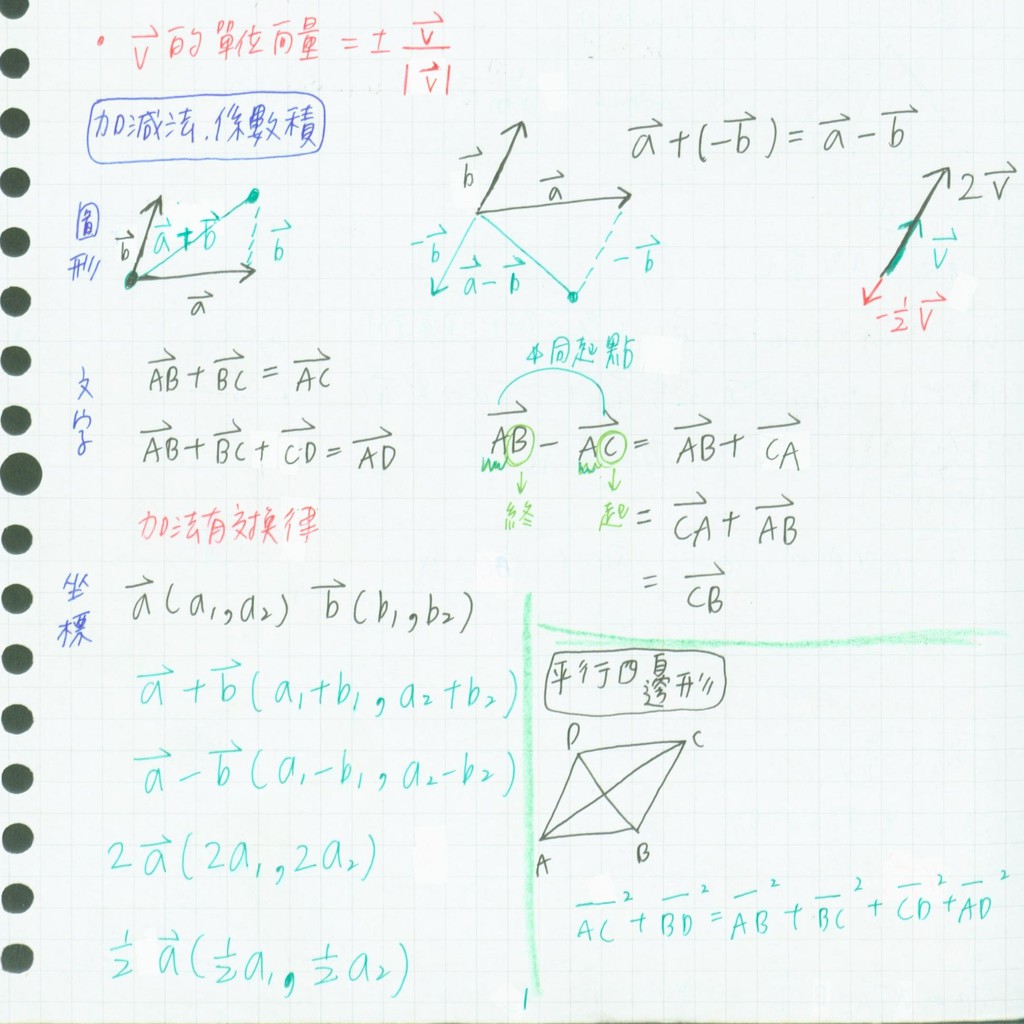 • v⃗ 的單位向量 = ± v⃗/|v⃗|
加減法.係數積
圖形
b⃗
a⃗+b⃗
b⃗
a⃗
b⃗
a⃗
-b⃗
a⃗-b⃗
-b⃗
a⃗+(-b⃗)=a⃗-b⃗
2v⃗
v⃗
-½v⃗
文字
AB⃗+BC⃗=AC⃗
AB⃗+BC⃗+CD⃗=AD⃗
加法有交換律
同起點
AB⃗-AC⃗=AB⃗+CA⃗
終 起
=CA⃗+AB⃗
=CB⃗
坐標
a⃗(a₁,a₂) b⃗(b₁,b₂)
a⃗+b⃗(a₁+b₁,a₂+b₂)
a⃗-b⃗(a₁-b₁,a₂-b₂)
2a⃗(2a₁,2a₂)
½a⃗(½a₁,½a₂)
平行四邊形
D C
A B
A̅C̅²+B̅D̅²=A̅B̅²+B̅C̅²+C̅D̅²+A̅D̅²